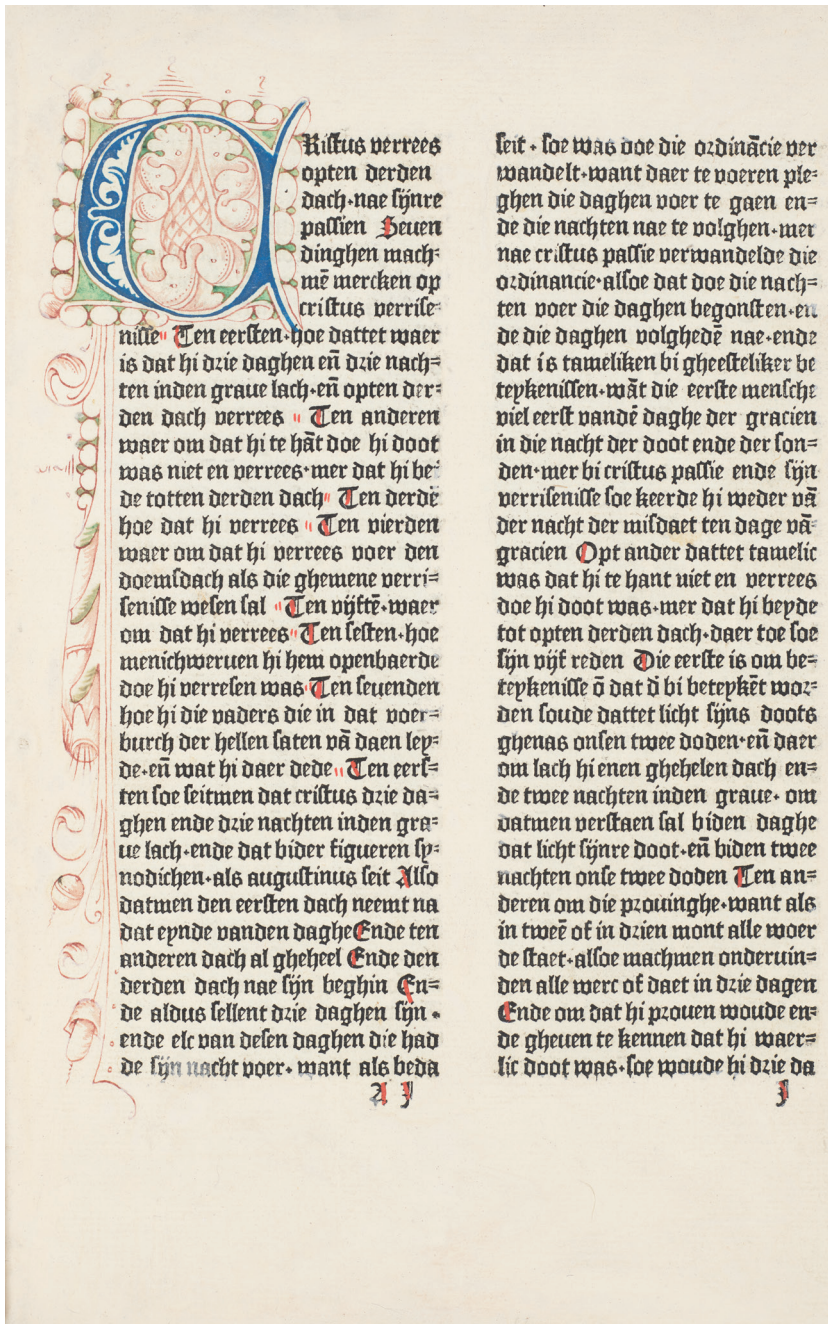 CRistus verrees
opten derden
dach·nae sijnre
passien Seuen
dinghen mach-
mē mercken op
cristus verrise-
nisse Ten eersten·hoe dattet waer
is dat hi drie daghen eñ drie nach-
ten inden graue lach·eñ opten der-
den dach verrees Ten anderen
waer om dat hi te hāt doe hi doot
was niet en verrees·mer dat hi be-
de totten derden dach Ten derdē
hoe dat hi verrees Ten vierden
waer om dat hi verrees voer den
doemsdach als die ghemene verri-
senisse wesen sal Ten vijftē·waer
om dat hi verrees Ten sesten·hoe
menichweruen hi hem openbaerde
doe hi verresen was Ten seuenden
hoe hi die vaders die in dat voer-
burch der hellen saten vā daen ley-
de·eñ wat hi daer dede Ten eers-
ten soe seitmen dat cristus drie da-
ghen ende drie nachten inden gra-
ue lach·ende dat bider figueren sy-
nodichen·als augustinus seit Also
datmen den eersten dach neemt na
dat eynde vanden daghe Ende ten
anderen dach al gheheel Ende den
derden dach nae sijn beghin En-
de aldus sellent drie daghen sijn·
ende elc van desen daghen die had
de sijn nacht voer·want als beda
A J
seit·soe was doe die ordināncie ver
wandelt·want daer te voeren ple-
ghen die daghen voer te gaen en-
de die nachten nae te volghen·mer
nae cristus passie verwandelde die
ordinancie·alsoe dat doe die nach-
ten voer die daghen begonsten·en
de die daghen volghedē nae·ende
dat is tameliken bi gheesteliker be
teykenissen·wāt die eerste mensche
viel eerst vandē daghe der gracien
in die nacht der doot ende der son-
den·mer bi cristus passie ende sijn
verrisenisse soe keerde hi weder vā
der nacht der misdaet ten dage vā
gracien Opt ander dattet tamelic
was dat hi te hant niet en verrees
doe hi doot was·mer dat hi beyde
tot opten derden dach·daer toe soe
sijn vijf reden Die eerste is om be-
teykenisse ō dat d̄ bi beteykēt wor-
den soude dattet licht sijns doots
ghenas onsen twee doden·eñ daer
om lach hi enen ghehelen dach en-
de twee nachten inden graue·om
datmen verstaen sal biden daghe
dat licht sijnre doot·eñ biden twee
nachten onse twee doden Ten an-
deren om die prouinghe·want als
in tweē of in drien mont alle woer
de staet·alsoe machmen onderuin-
den alle werc of daet in drie dagen
Ende om dat hi prouen woude en-
de gheuen te kennen dat hi waer-
lic doot was·soe woude hi drie da
J